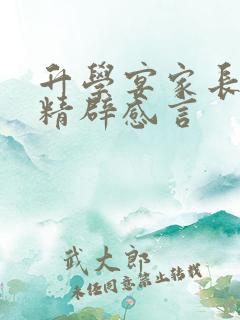 升學宴家長
精辟感言
武大郎
未经同意禁止转载